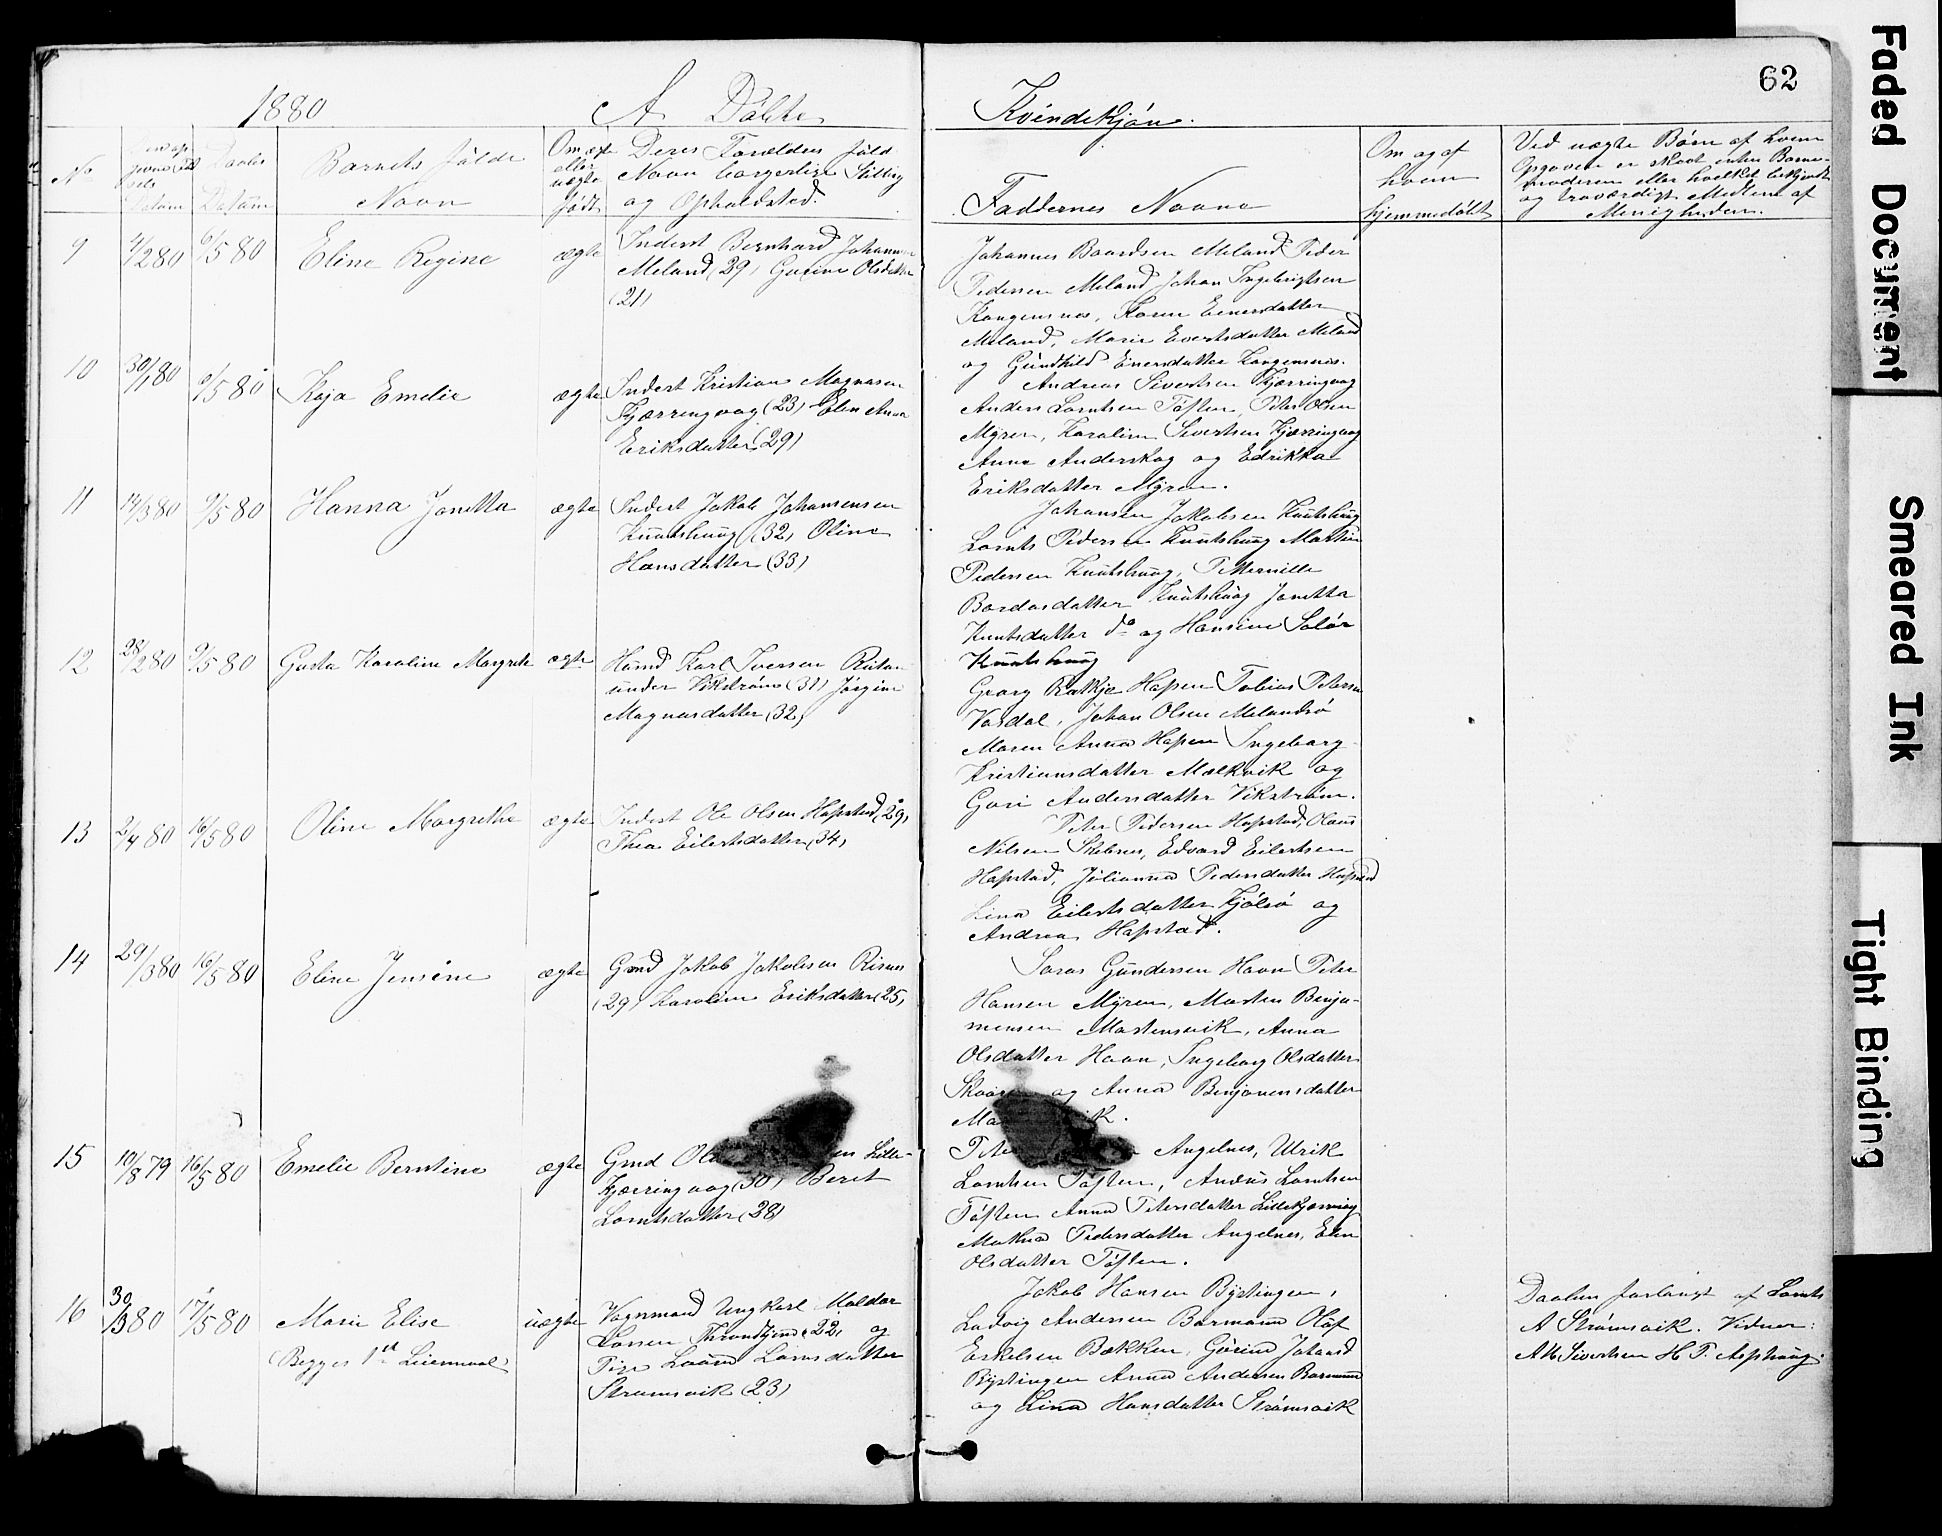 62
1880 A Døbte Kvindekjøn.
No
Daabs
Datum
Barnets fulde
Navn
Om ægte
eller
uægte
født
Deres Forældres fulde
Navn borgerlige Stilling
og Opholdsted.
Faddernes Navne
Om og af
hvem
hjemmedøbt
Ved uægte Børn af hvem
Opgaven er skeet enten Barne-
moderen eller hvilket bekjendt
og troværdigt Medlem af
Menigheden.
9 4/2 80 9/5 80 Eline Regine ægte
Inderst Bernhard Johannesen
Meland (29) Gurine Olsdatter
(21)
Johannes Baardsen Meland Peder
Pedersen Meland Johan Ingebrigtsen
Kongensnes, Karen Einersdatter
Meland, Marie Evertsdatter Meland
og Gundhild Einersdatter Kongensnes.
10 30/1 80 9/5 80 Kaja Emelie ægte
Inderst Kristian Magnusen
Kjærringvaag (23) Elen Anna
Eriksdatter (29)
Andreas Sivertsen Kjærringvag
Anders Lorntsen Tøften, Peter Olsen
Myren, Karoline Sivertsen Kjærringvag
Anna Anderskog og Edrikka
Eriksdatter Myren.
11 14/3 80 9/5 80 Hanna Janetta ægte
Inderst Jakob Johansensen
Knutshaug (32) Oline
Hansdatter (33)
Johansen Jakobsen Knutshaug
Lornts Pedersen Knutshaug Martin
Pedersen Knutshaug, Petternille
Bardosdatter Knutshaug Janetta
Knutsdatter do og Hansine Solør
Knutshaug
12 28/2 80 9/5 80 Gusta Karoline Margrete ægte
Husmd Karl Iversen Reitan
under Vikstrøm (31) Jørgine
Magnusdatter (32)
Georg Ratkje Hopen Tobias Petersen
Vasdal, Johan Olsen Melandsø
Maren Anna Hopen Ingeborg
Kristiansdatter Mælkvik og
Guri Andersdatter Vikstrøm.
13 2/4 80 16/5 80 Oline Margrethe ægte
Inderst Ole Olsen Hopstad (29)
Thea Eilertsdatter (34)
Peter Pedersen Hopstad, Olaus
Nilsen Skebnes, Edvard Eilertsen
Hopstad, Julianna Pedersdatter Hopstad
Lina Eilertsdatter Kjølsø og
Andrea Hopstad.
14 29/3 80 16/5 80 Eline Jensine ægte
Gmd Jakob Jakobsen Risnes
(29) Karoline Eriksdatter (25)
Gundersen Havn Peter
Hansen Myren, Morten Benja-
mensen Mortensvik, Anna
Olsdatter Havn, Ingeborg Olsdatter
og Anna Benjamensdatter
15 10/8 79 16/5 80 Emelie Berntine ægte
Gmd Lille-
Kjærringvag (30) Beret
Lorntsdatter (28)
Angelnes, Ulrik
Lorntsen Tøften, Anders Lorntsen
Tøften Anna Petersdatter Lillekjærringvag
Mathea Pedersdatter Angelnes, Elen
Olsdatter Tøften.
16 30/3 80 17/5 80 Marie Elise uægte
(Begges 1st Leiermaal)
Vognmand Ungkarl Haldor
Larsen Throndhjem (22) og
Pige Lorntsdatter
Strømsvik (23)
Jakob Hansen Bystingen,
Ludvig Andersen Barmann Olaf
Eskelsen Bækken, Gurine Johansd
Bystingen Anna Andersen Barmann
og Lina Hansdatter Strømsvik
Daaben forlangt af Lornts
A Strømsvik. Vidner:
A M Sivertsen H P. Asphaug.
Faded Document
Smeared Ink
Tight Binding